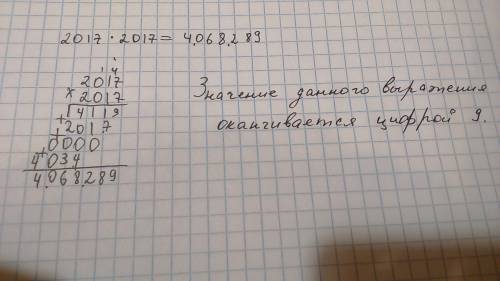 2017 · 2017 = 4.068.289
1 4
2017
× 2017
14119
+ 2017
+ 0000
+ 4034
4.068.289
Значение данного выражения
оканчивается цифрой 9.